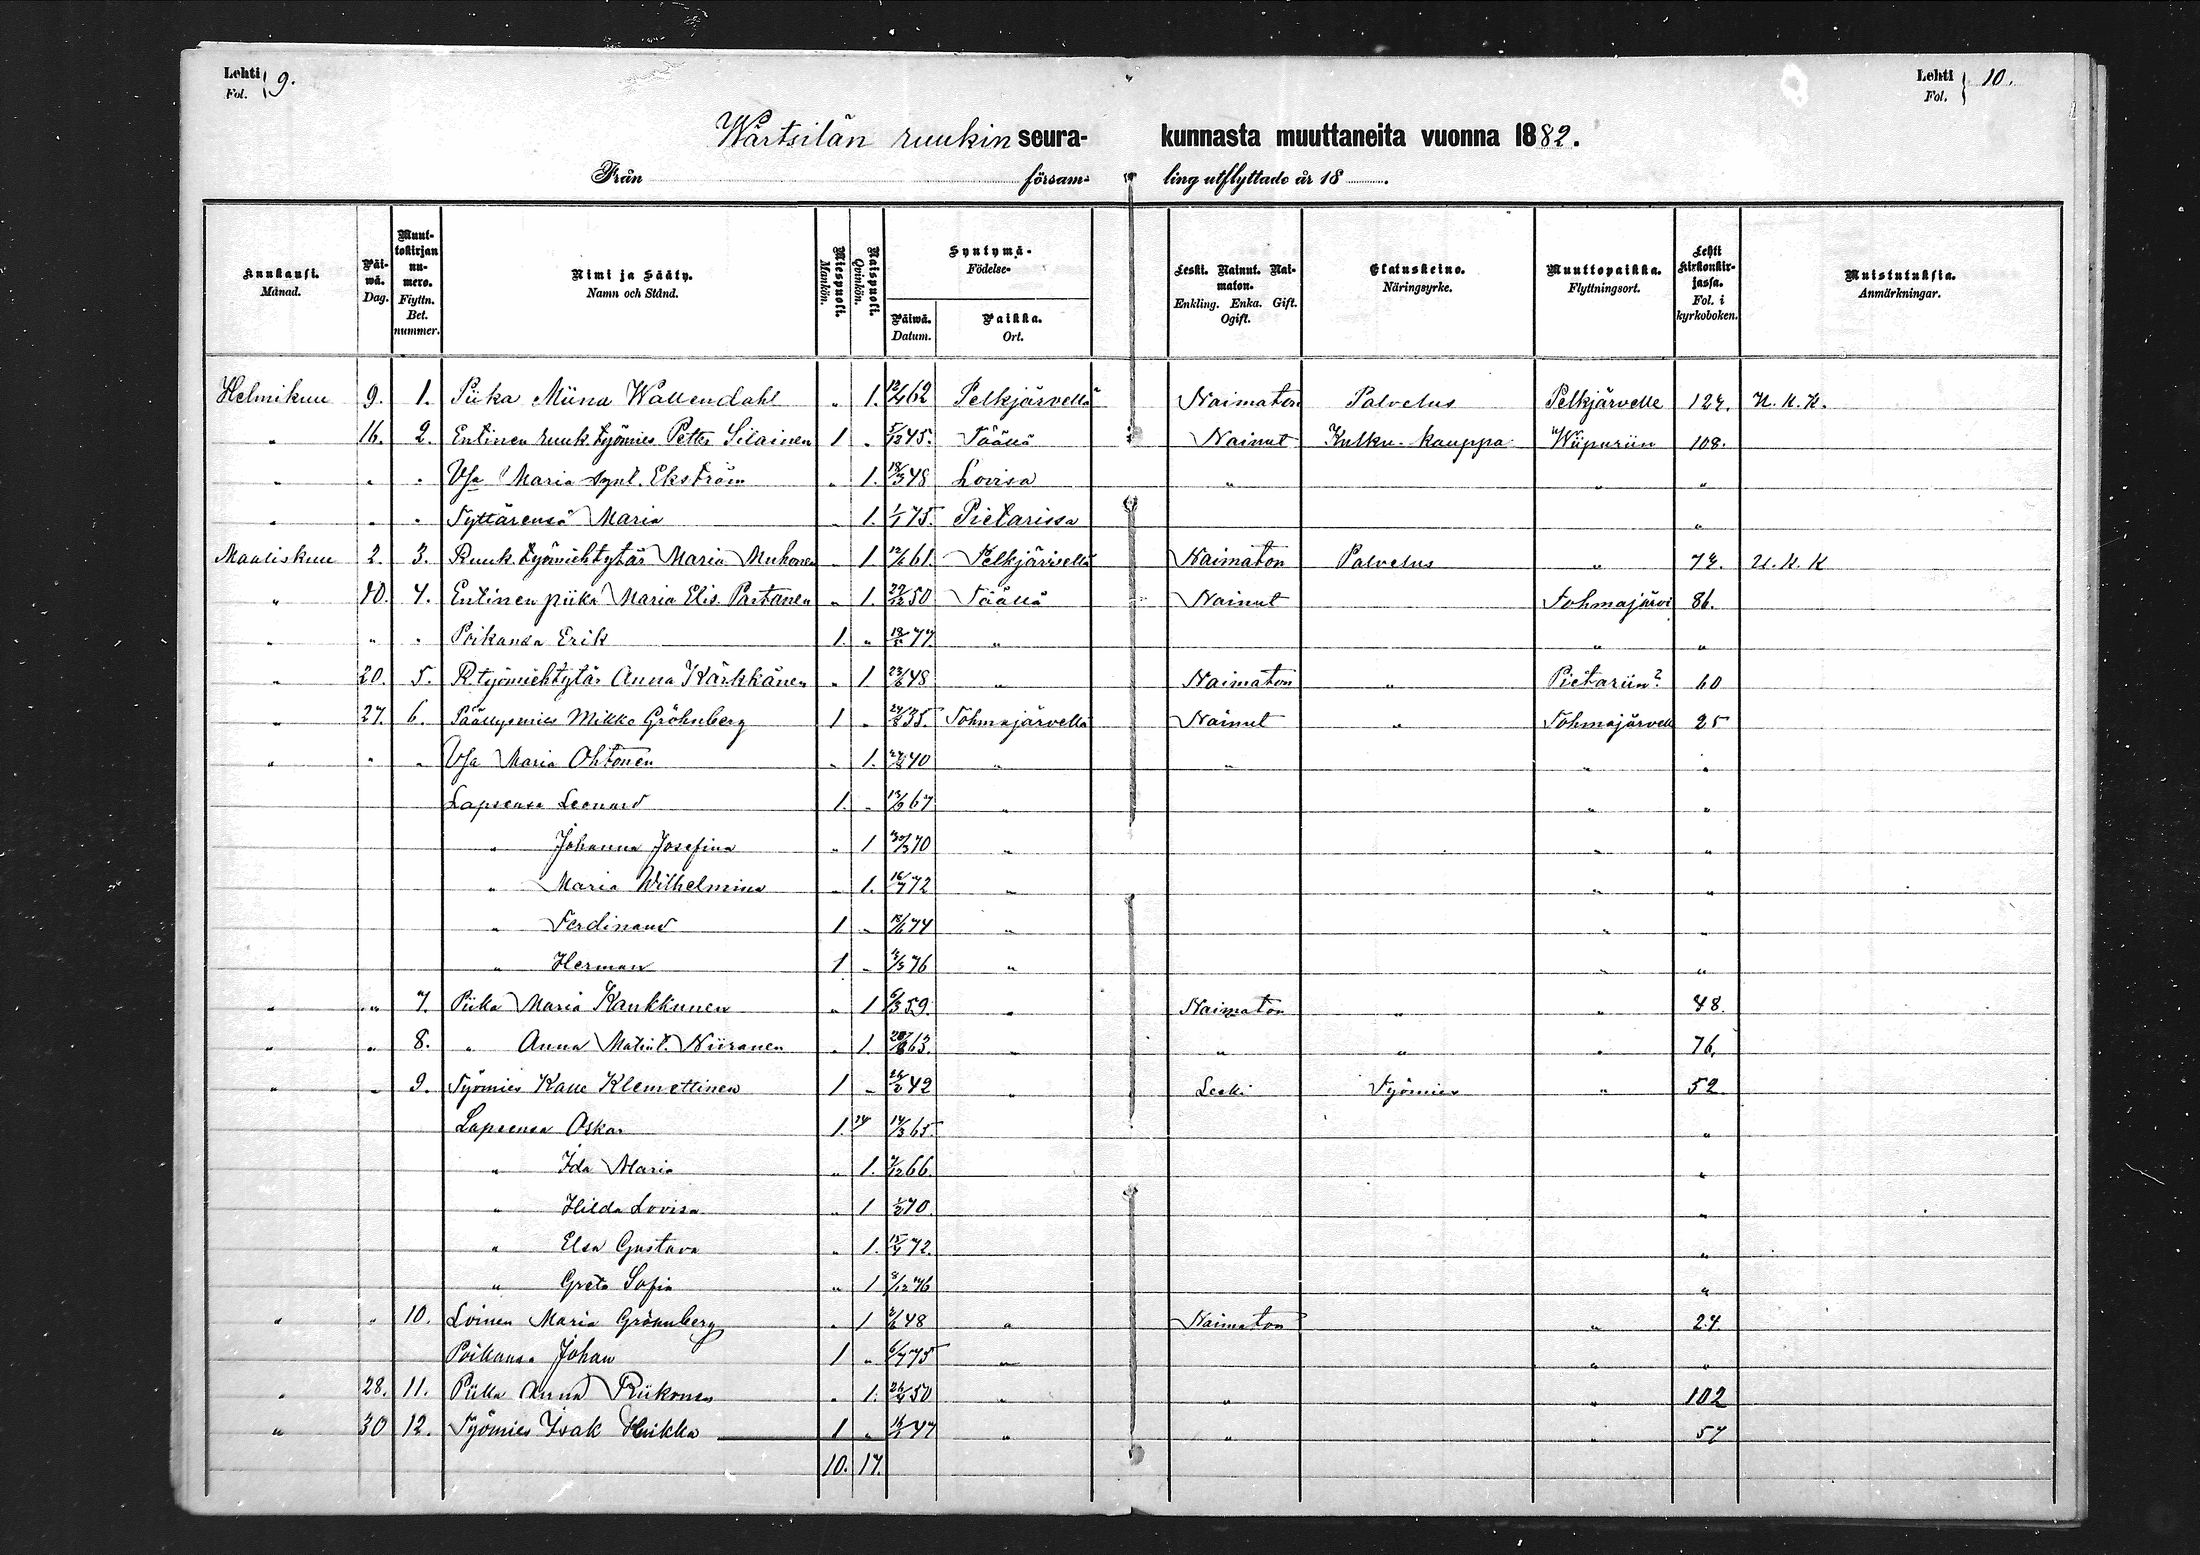 Lehti 9. Lehti 10.
Fol. Fol.
Wärtsilän ruukin seura- kunnasta muuttaneita vuonna 1882.
Från församling utflyttade år 18
Kuukausi. Månad.
Päiwä. Dag.
Muuttokirjan numero. Flyttn. Bet. nummer.
Nimi ja Sääty. Namn och Stånd.
Miespuoli. Mankön.
Naispuoli. Qvinkön.
Syntymä- Födelse-
Päiwä. Datum.
Paikka. Ort.
Leski. Nainut. Naimaton. Enkling. Enka. Gift. Ogift.
Elatuskeino. Näringsyrke.
Muuttopaikka. Flyttningsort.
Lehti kirkonkirjassa. Fol. i kyrkoboken.
Muistutuksia. Anmärkningar.
Helmikuu 9. 1. Piika Miina Wallendahl " 1. 62 Pelkjärvellä Naimaton Palvelus Pelkjärvelle 124. N. K. K.
" 16. 2. Entinen ruuk. työmies Petter Silainen 1 " 5/12 45. Täällä Nainut Kulku-kauppa Wiipuriin 108.
" " " Vsa Maria synt. Ekström " 1. 18/3 48 Lovisa " " "
" " " Tyttärensä Maria " 1. 1/1 75. Pietarissa "
Maaliskuu 2. 3. Ruuk. työmiehtytär Maria Muhonen " 1 61. Pelkjärvellä Naimaton Palvelus " 74. U. K. K
" 10. 4. Entinen piika Maria Elis. Partanen " 1. 29/12 50 Täällä Nainut Tohmajärvi 86.
" " " Poikansa Erik 1. " 77. " " "
" 20. 5. R. työmiehtytär Anna Kärkkänen " 1 48 " Naimaton " Pietariin? 60
" 27. 6. Päällysmies Mikko Gröhnberg 1 " 35. Tohmajärvellä Nainut " Tohmajärvelle 25
" " " Vsa Maria Ohtonen " 1. 40 " " " "
Lapsensa Leonard 1. " 67 " " "
" Johanna Josefina " 1 70 " " "
" Maria Wilhelmina " 1. 16/7 72 " " "
" Ferdinand 1 " 74 " " "
" Herman 1 " 76 " " "
" " 7. Piika Maria Kaukkunen " 1 6/3 59. " Naimaton " " 48.
" " 8. " Anna Matint. Niiranen " 1. 63. " " " " 76.
" " 9. Työmies Kalle Klemettinen 1 " 42 " Leski Työmies " 52
Lapsensa Oskar 1. 14/3 65. "
" Ida Maria " 1. 7/12 66 "
" Hilda Lovisa " 1 70. "
" Elsa Gustava " 1. 72. "
" Greta Sofia " 1 8/12 76 "
" " 10. Loinen Maria Grönnberg " 1 48 " Naimaton " 24.
Poikansa Johan 1 " 6/7 75 " " "
" 28. 11. Piika Anna Riikonen " 1. 50 " " " 102
" 30 12. Työmies Isak Hukka 1 " 47 " " " 57
10. 17.